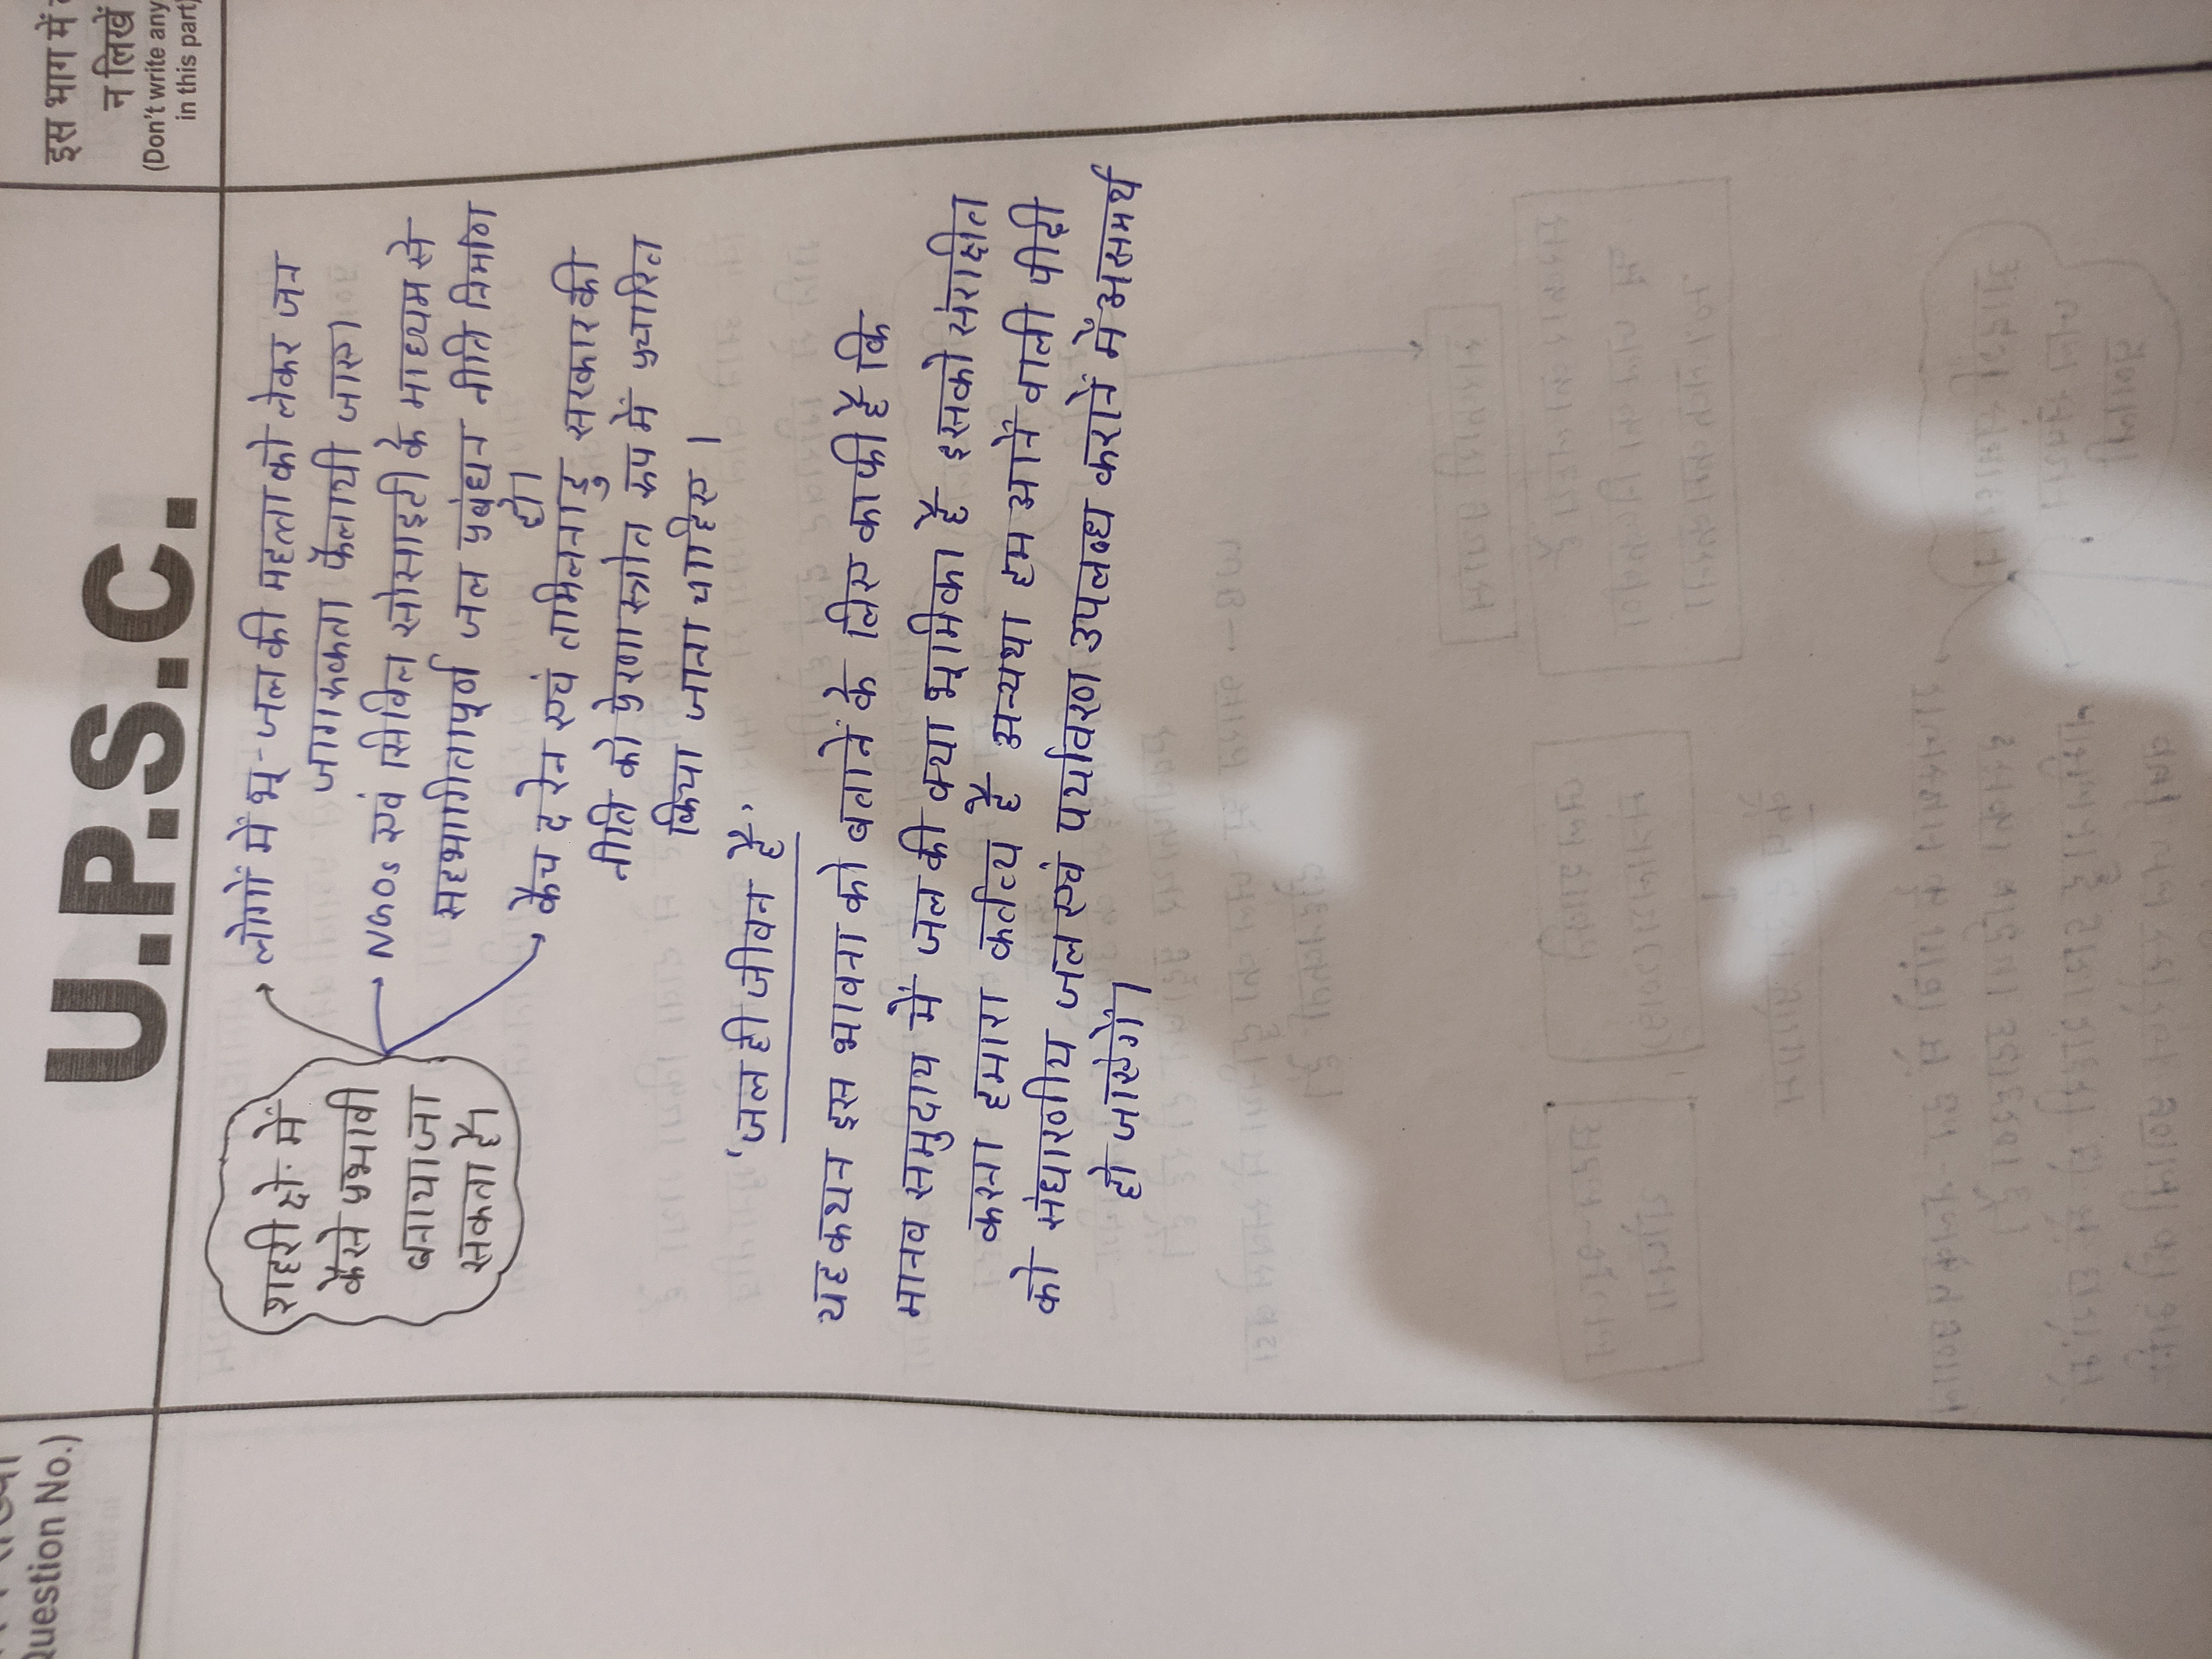 Question No.)
U.P.S.C.
इस भाग में
न लिखें
(Don't write any
in this part)
शहरी क्षे. में
कैसे प्रभावी
बनाया जा
सकता है।
लोगों में भू-जल की महत्ता को लेकर जन
जागरूकता फैलायी जाए।
NGOs एवं सिविल सोसाइटी के माध्यम से
सहभागितापूर्ण जल प्रबंधन नीति निर्माण
हो।
कैच द रेन एवं तामिलनाडु सरकार की
नीति को प्रेरणास्त्रोत रूप में प्रचारित
किया जाना चाहिए।
'जल ही जीवन है'
यह कथन इस भावना को बतानें के लिए काफी है कि
मानव समुदाय में जल की क्या भूमिका है इसको संरक्षित
करना हमारा कर्तव्य है अन्यथा हम आनें वाली पीढ़ी
को संधारणीय जल एवं पर्यावरण उपलब्ध करानें में असमर्थ
हो जाएंगें।